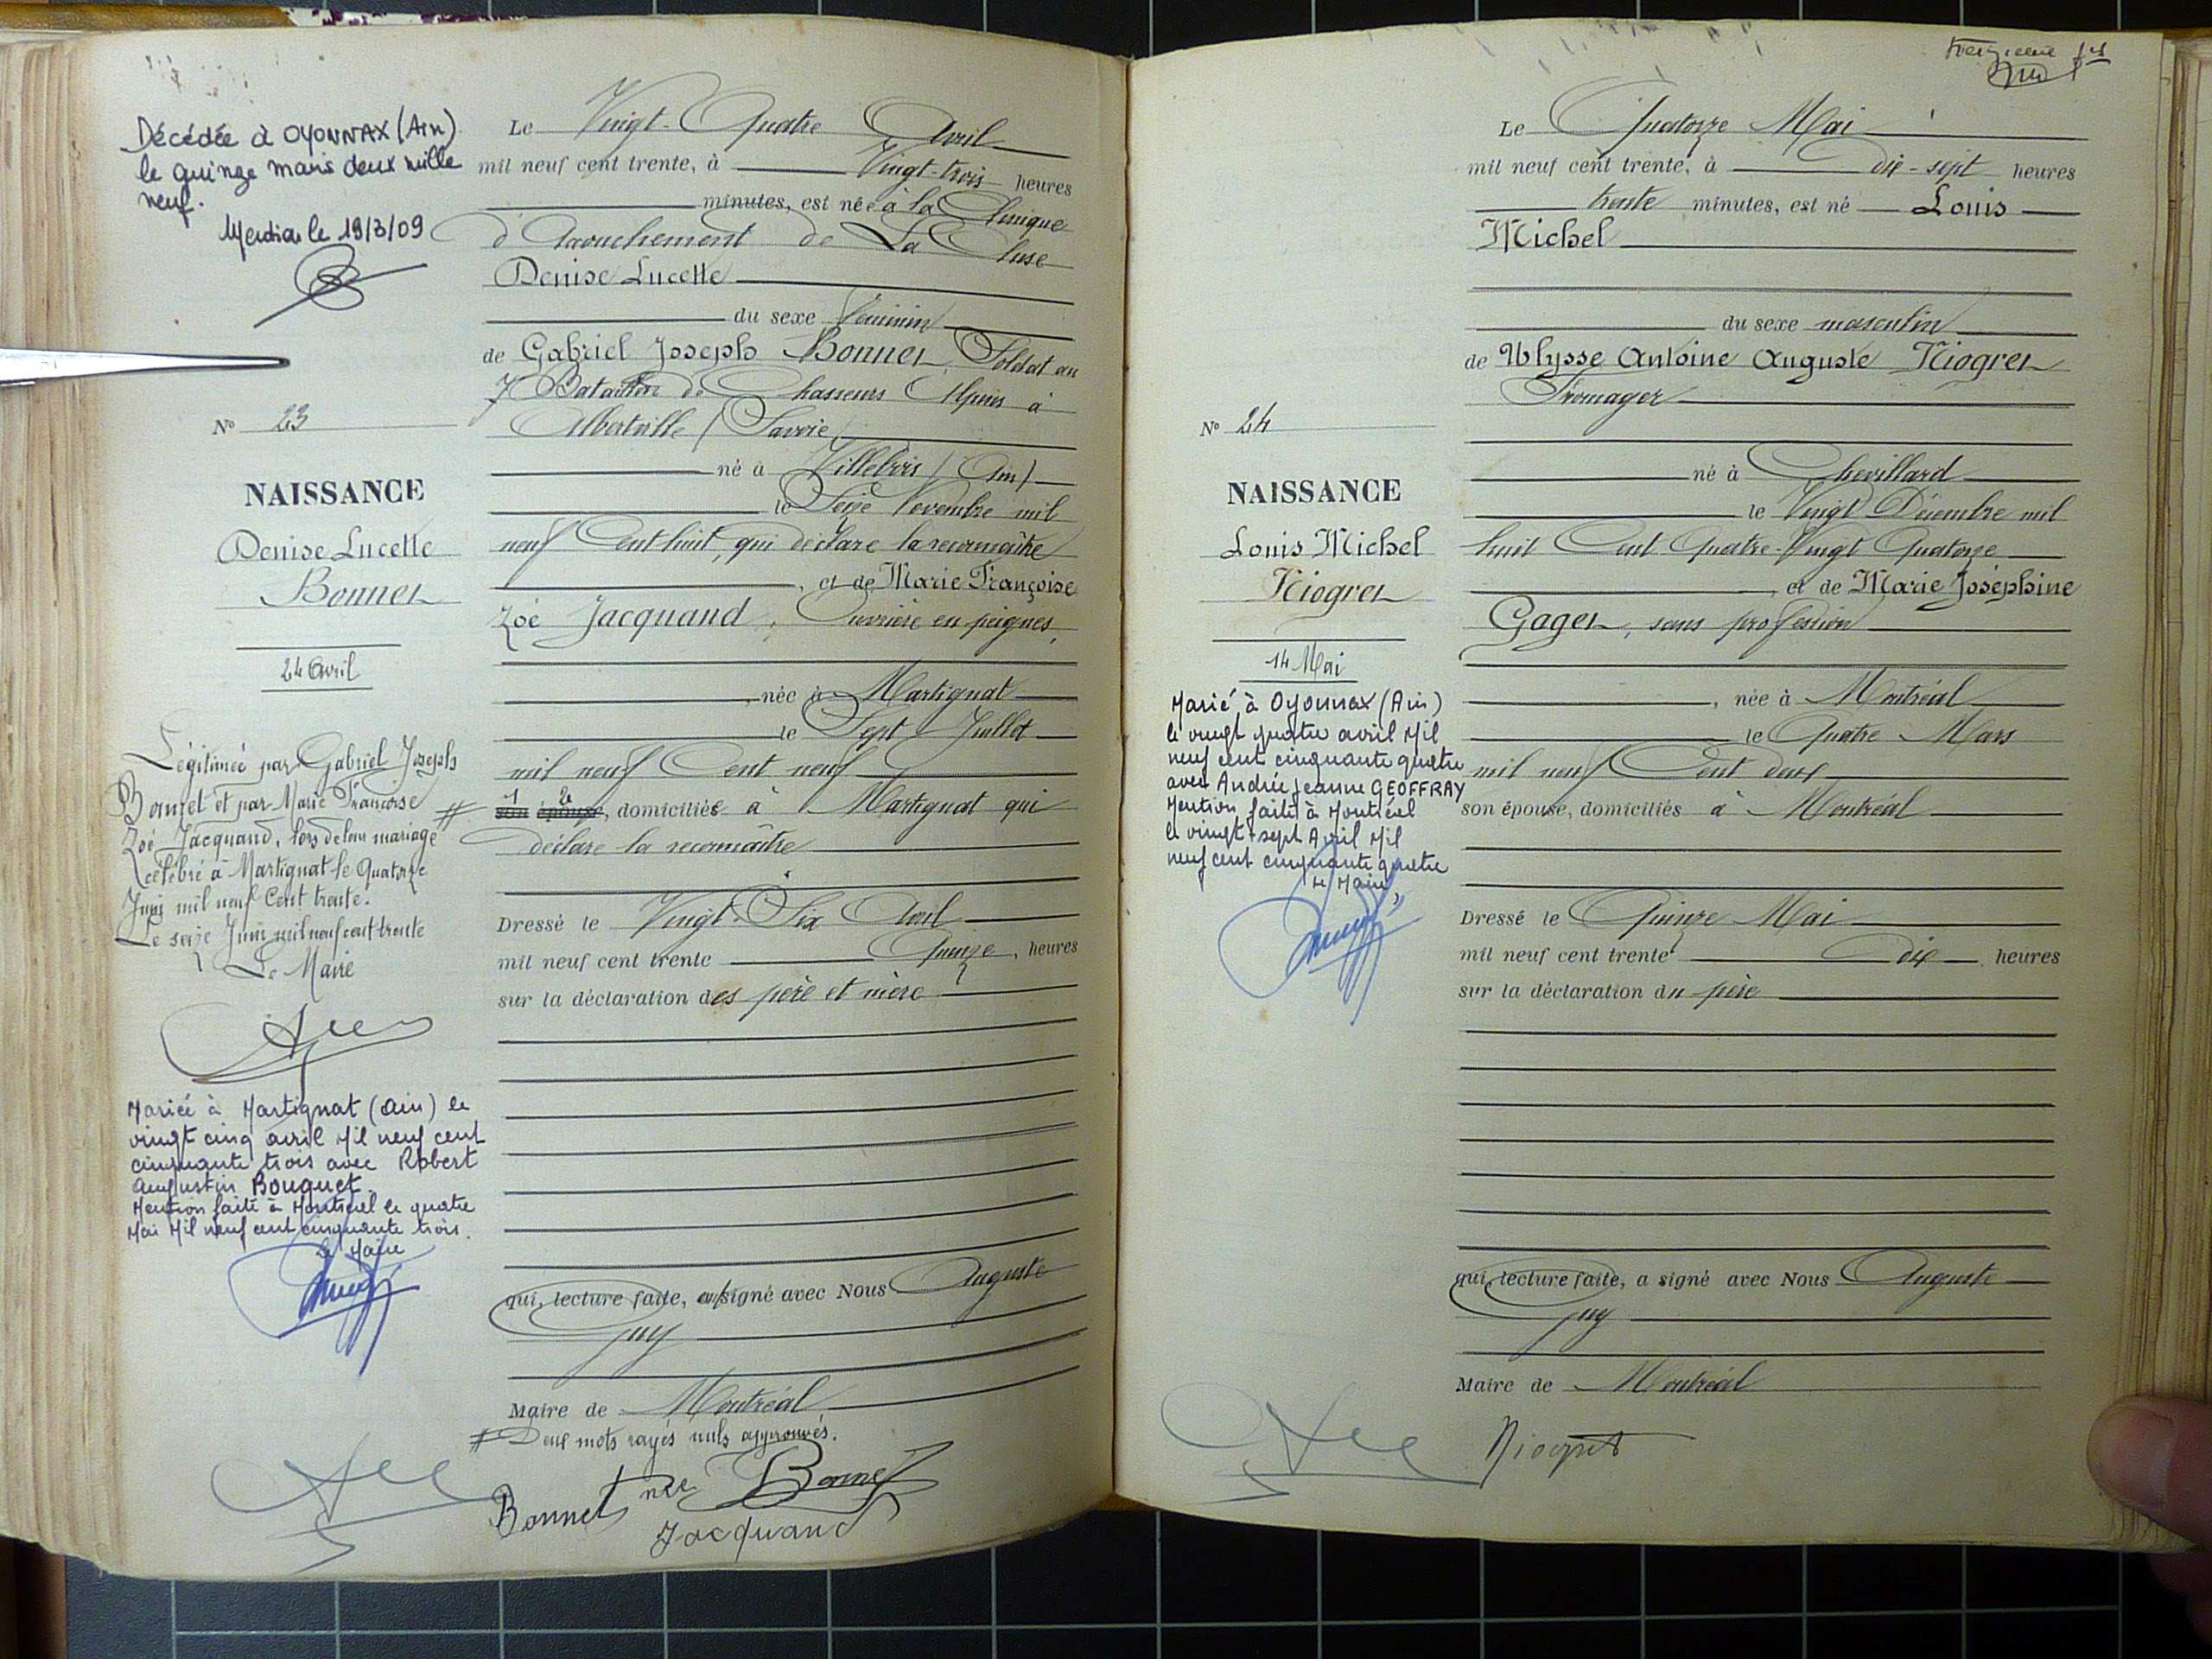 Décédée à OYONNAX (Ain)
le quinze mars deux mille
neuf.
Mention le 19/3/09
N° 23
NAISSANCE
Denise Lucette
Bonnet
24 Avril
Légitimée par Gabriel Joseph
Bonnet et par Marie Françoise
Zoé Jacquand, lors de leur mariage
célébré à Martignat le Quatorze
Juin mil neuf Cent trente.
Le seize Juin mil neuf cent trente
Le Maire
Mariée à Martignat (Ain) le
vingt cinq avril Mil neuf cent
cinquante trois avec Robert
Augustin Bouquet
Mention faite à Montréal le quatre
Mai Mil neuf cent cinquante trois.
le Maire
Le Vingt-Quatre Avril
mil neuf cent trente, à Vingt-trois heures
minutes, est née à la Clinique
d'Accouchement de La Cluse
Denise Lucette
du sexe féminin
de Gabriel Joseph Bonnet, Soldat au
7 Bataillon de Chasseurs Alpins à
Albertville (Savoie)
né à Villebois (Ain)
le Seize Novembre mil
neuf Cent huit, qui déclare la reconnaître
, et de Marie Françoise
Zoé Jacquand, Ouvrière en peignes,
, née à Martignat
le Sept Juillet
mil neuf Cent neuf
# 1 son 2 épouse, domiciliés à Martignat qui
déclare la reconnaître
Dressé le Vingt-Six Avril
mil neuf cent trente Quinze, heures
sur la déclaration des père et mère
qui, lecture faite, ont signé avec Nous Auguste
Guy
Maire de Montréal
# Deux mots rayés nuls approuvés.
Bonnet née Bonnet
Jacquand
Le Quatorze Mai
mil neuf cent trente, à dix-sept heures
trente minutes, est né Louis
Michel
du sexe masculin
de Ulysse Antoine Auguste Niogret
Fromager
né à Chevillard
le Vingt Décembre mil
huit Cent Quatre-Vingt Quatorze
, et de Marie Joséphine
Gaget, sans profession
, née à Montréal
le Quatre Mars
mil neuf Cent deux
son épouse, domiciliés à Montréal
Dressé le Quinze Mai
mil neuf cent trente dix heures
sur la déclaration du père
qui, lecture faite, a signé avec Nous Auguste
Guy
Maire de Montréal
Niogret
N° 24
NAISSANCE
Louis Michel
Niogret
14 Mai
Marié à Oyonnax (Ain)
le vingt quatre avril Mil
neuf cent cinquante quatre
avec Andrée Jeanne GEOFFRAY
Mention faite à Montréal
le vingt-sept Avril Mil
neuf cent cinquante quatre
le Maire